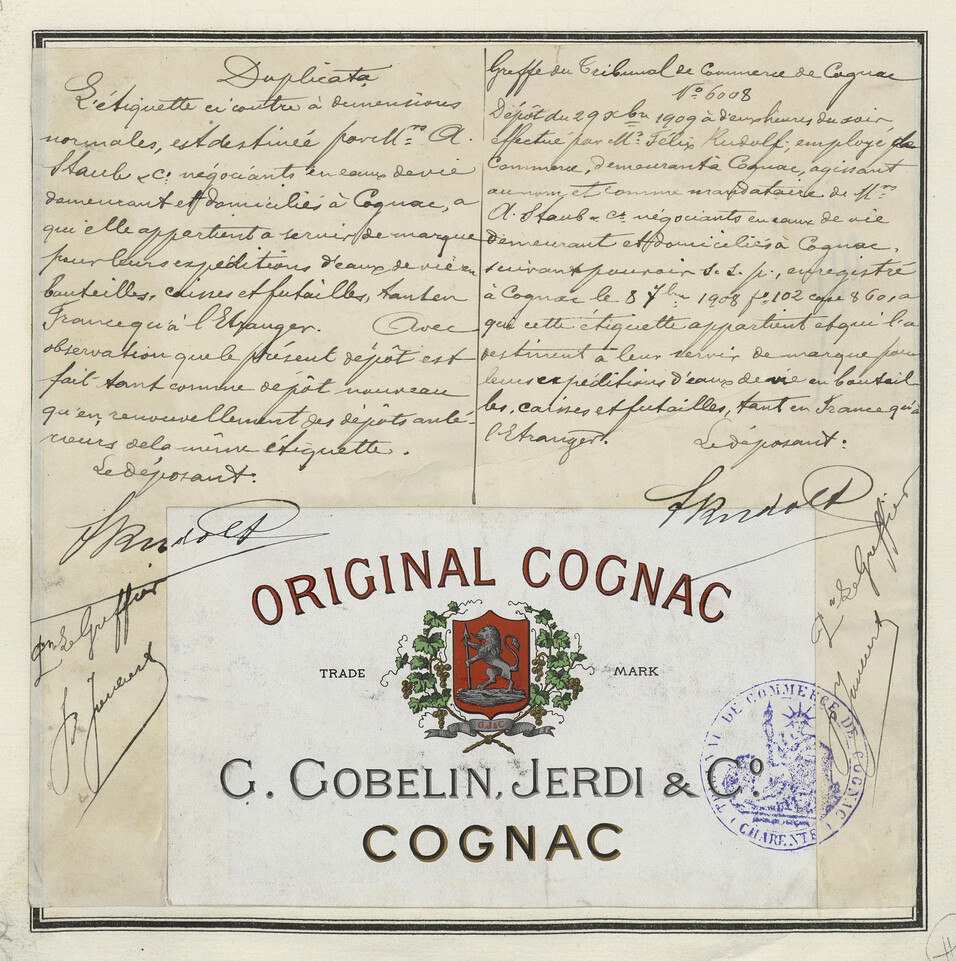 Duplicata
L'étiquette ci contre à dimensions
normales, est destinée par Mrs A.
Staub & Cie négociants en eaux de vie
demeurant et domiciliés à Cognac, a
qui elle appartient a servir de marque
pour leurs expéditions d'eaux de vie en
bouteilles, caisses et futailles, tant en
France qu'à l'Etranger. Avec
observation que le présent dépôt est
fait tant comme dépôt nouveau
qu'en renouvellement des dépôts anté-
rieurs de la même étiquette.
Le déposant:
FRudolf
Pr Le Greffier
Greffe du Tribunal de Commerce de Cognac
No 6008
Dépôt du 29 Xbre 1909 à deux heures du soir
effectué par Mr Félix Rudolf, employé de
Commerce, demeurant à Cognac, agissant
au nom et comme mandataire de Mrs
A. Staub & Cie négociants en eaux de vie
demeurant et domiciliés à Cognac,
suivant pouvoir s. s. p., enregistré
à Cognac le 8 7bre 1908 fo 102 case 860, a
qui cette étiquette appartient et qui l'a
destinent à leur servir de marque pour
leurs expéditions d'eaux de vie en bouteil
les, caisses et futailles, tant en France qu'à
l'Etranger. Le déposant:
FRudolf
Pr Le Greffier
ORIGINAL COGNAC
TRADE MARK
G.J&C
G. GOBELIN, JERDI & Co.
COGNAC
TRIBUNAL DE COMMERCE DE COGNAC
(CHARENTE)